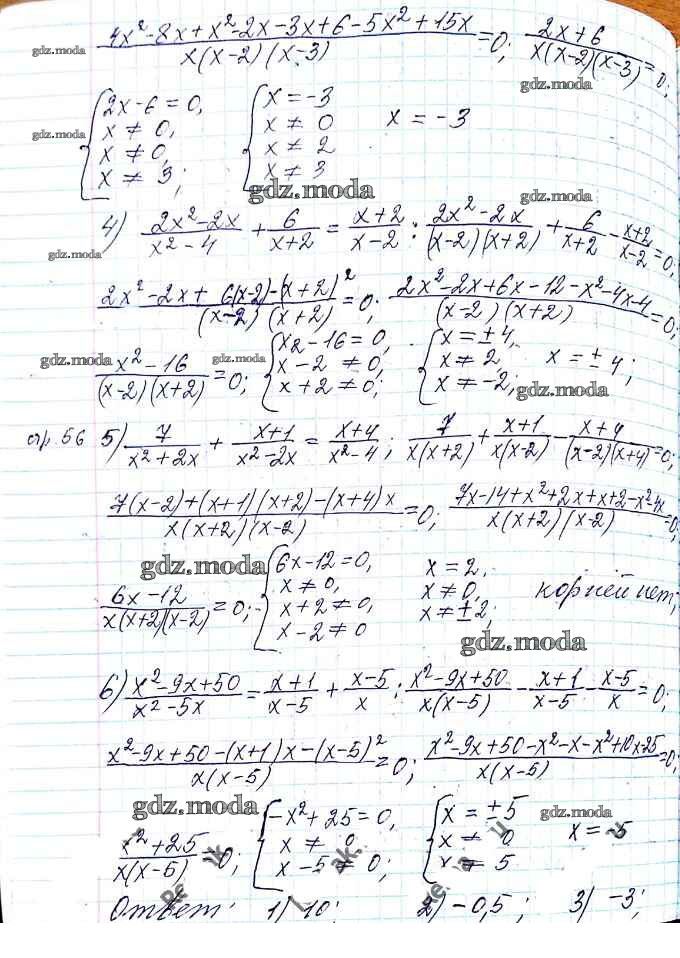 4x²-8x+x²-2x-3x+6-5x²+15x / x(x-2)(x-3) =0; 2x+6 / x(x-2)(x-3) =0;
gdz.moda
gdz.moda
{ 2x-6=0, x≠0, x≠0, x≠3; { x=-3 x≠0 x≠2 x≠3 x=-3
gdz.moda
gdz.moda
gdz.moda
4) 2x²-2x / x²-4 + 6 / x+2 = x+2 / x-2 ; 2x²-2x / (x-2)(x+2) + 6 / x+2 - x+2 / x-2 =0;
gdz.moda
2x²-2x+6(x-2)-(x+2)² / (x-2)(x+2) =0; 2x²-2x+6x-12-x²-4x-4 / (x-2)(x+2) =0;
x²-16 / (x-2)(x+2) =0; { x2-16=0, x-2≠0, x+2≠0; { x=±4, x≠2 x≠-2; x=±4;
gdz.moda
gdz.moda
gdz.moda
стр. 56 5) 7 / x²+2x + x+1 / x²-2x = x+4 / x²-4 ; 7 / x(x+2) + x+1 / x(x-2) - x+4 / (x-2)(x+4) =0;
7(x-2)+(x+1)(x+2)-(x+4)x / x(x+2)(x-2) =0; 7x-14+x²+2x+x+2-x²-4x / x(x+2)(x-2) =0;
gdz.moda
6x-12 / x(x+2)(x-2) =0; { 6x-12=0, x≠0, x+2≠0, x-2≠0 x=2, x≠0, x≠±2; корней нет;
gdz.moda
6) x²-9x+50 / x²-5x = x+1 / x-5 + x-5 / x ; x²-9x+50 / x(x-5) - x+1 / x-5 - x-5 / x =0;
x²-9x+50-(x+1)x-(x-5)² / x(x-5) =0; x²-9x+50-x²-x-x²+10x-25 / x(x-5) =0;
gdz.moda
gdz.moda
x²+25 / x(x-5) =0; { -x²+25=0, x≠0 x-5≠0; { x=±5 x≠0 x≠5 x=-5
Ответ: 1) 10; 2) -0,5; 3) -3;